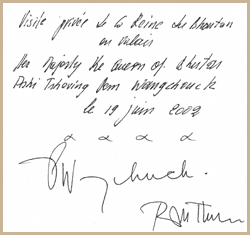 Visite privée de la Reine du Bhoutan
en Valais
Her Majesty the Queen of Bhutan
Ashi Tshering Pem Wangchuck
le 19 juin 2002
Wangchuck.